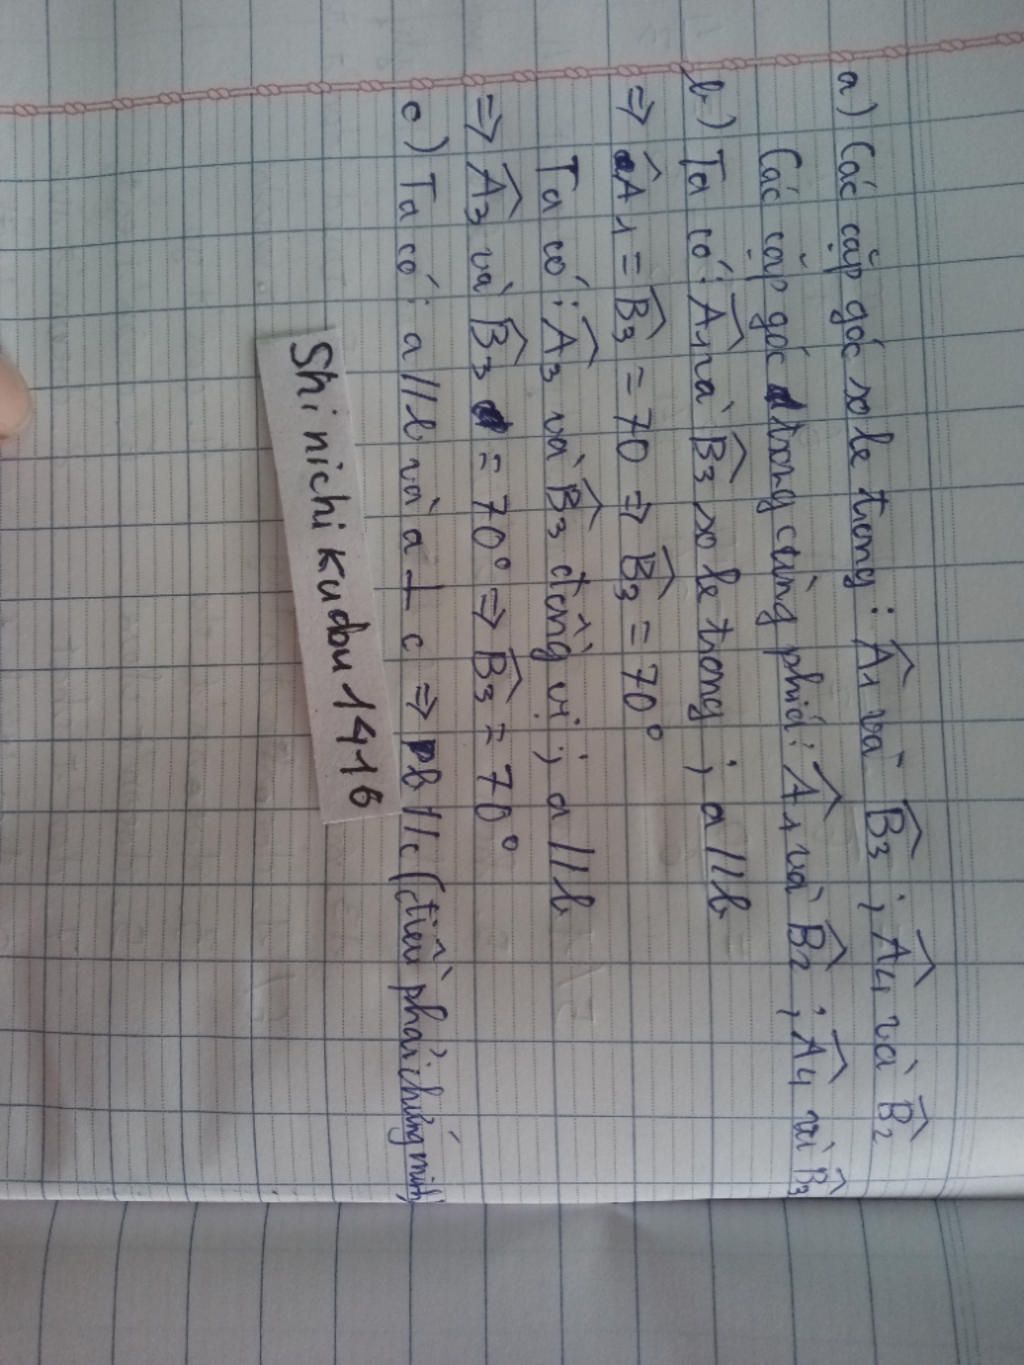 a) Các cặp góc so le trong: Â1 và B̂3 ; Â4 và B̂2
Các cặp góc trong cùng phía: Â1 và B̂2 ; Â4 và B̂3
b) Ta có: Â1 và B̂3 so le trong ; a // b
=> Â1 = B̂3 = 70 => B̂3 = 70°
Ta có: Â3 và B̂3 đồng vị ; a // b
=> Â3 và B̂3 = 70° => B̂3 = 70°
c) Ta có: a // b và a ⊥ c => b // c (điều phải chứng minh)
Shinichikudou1416